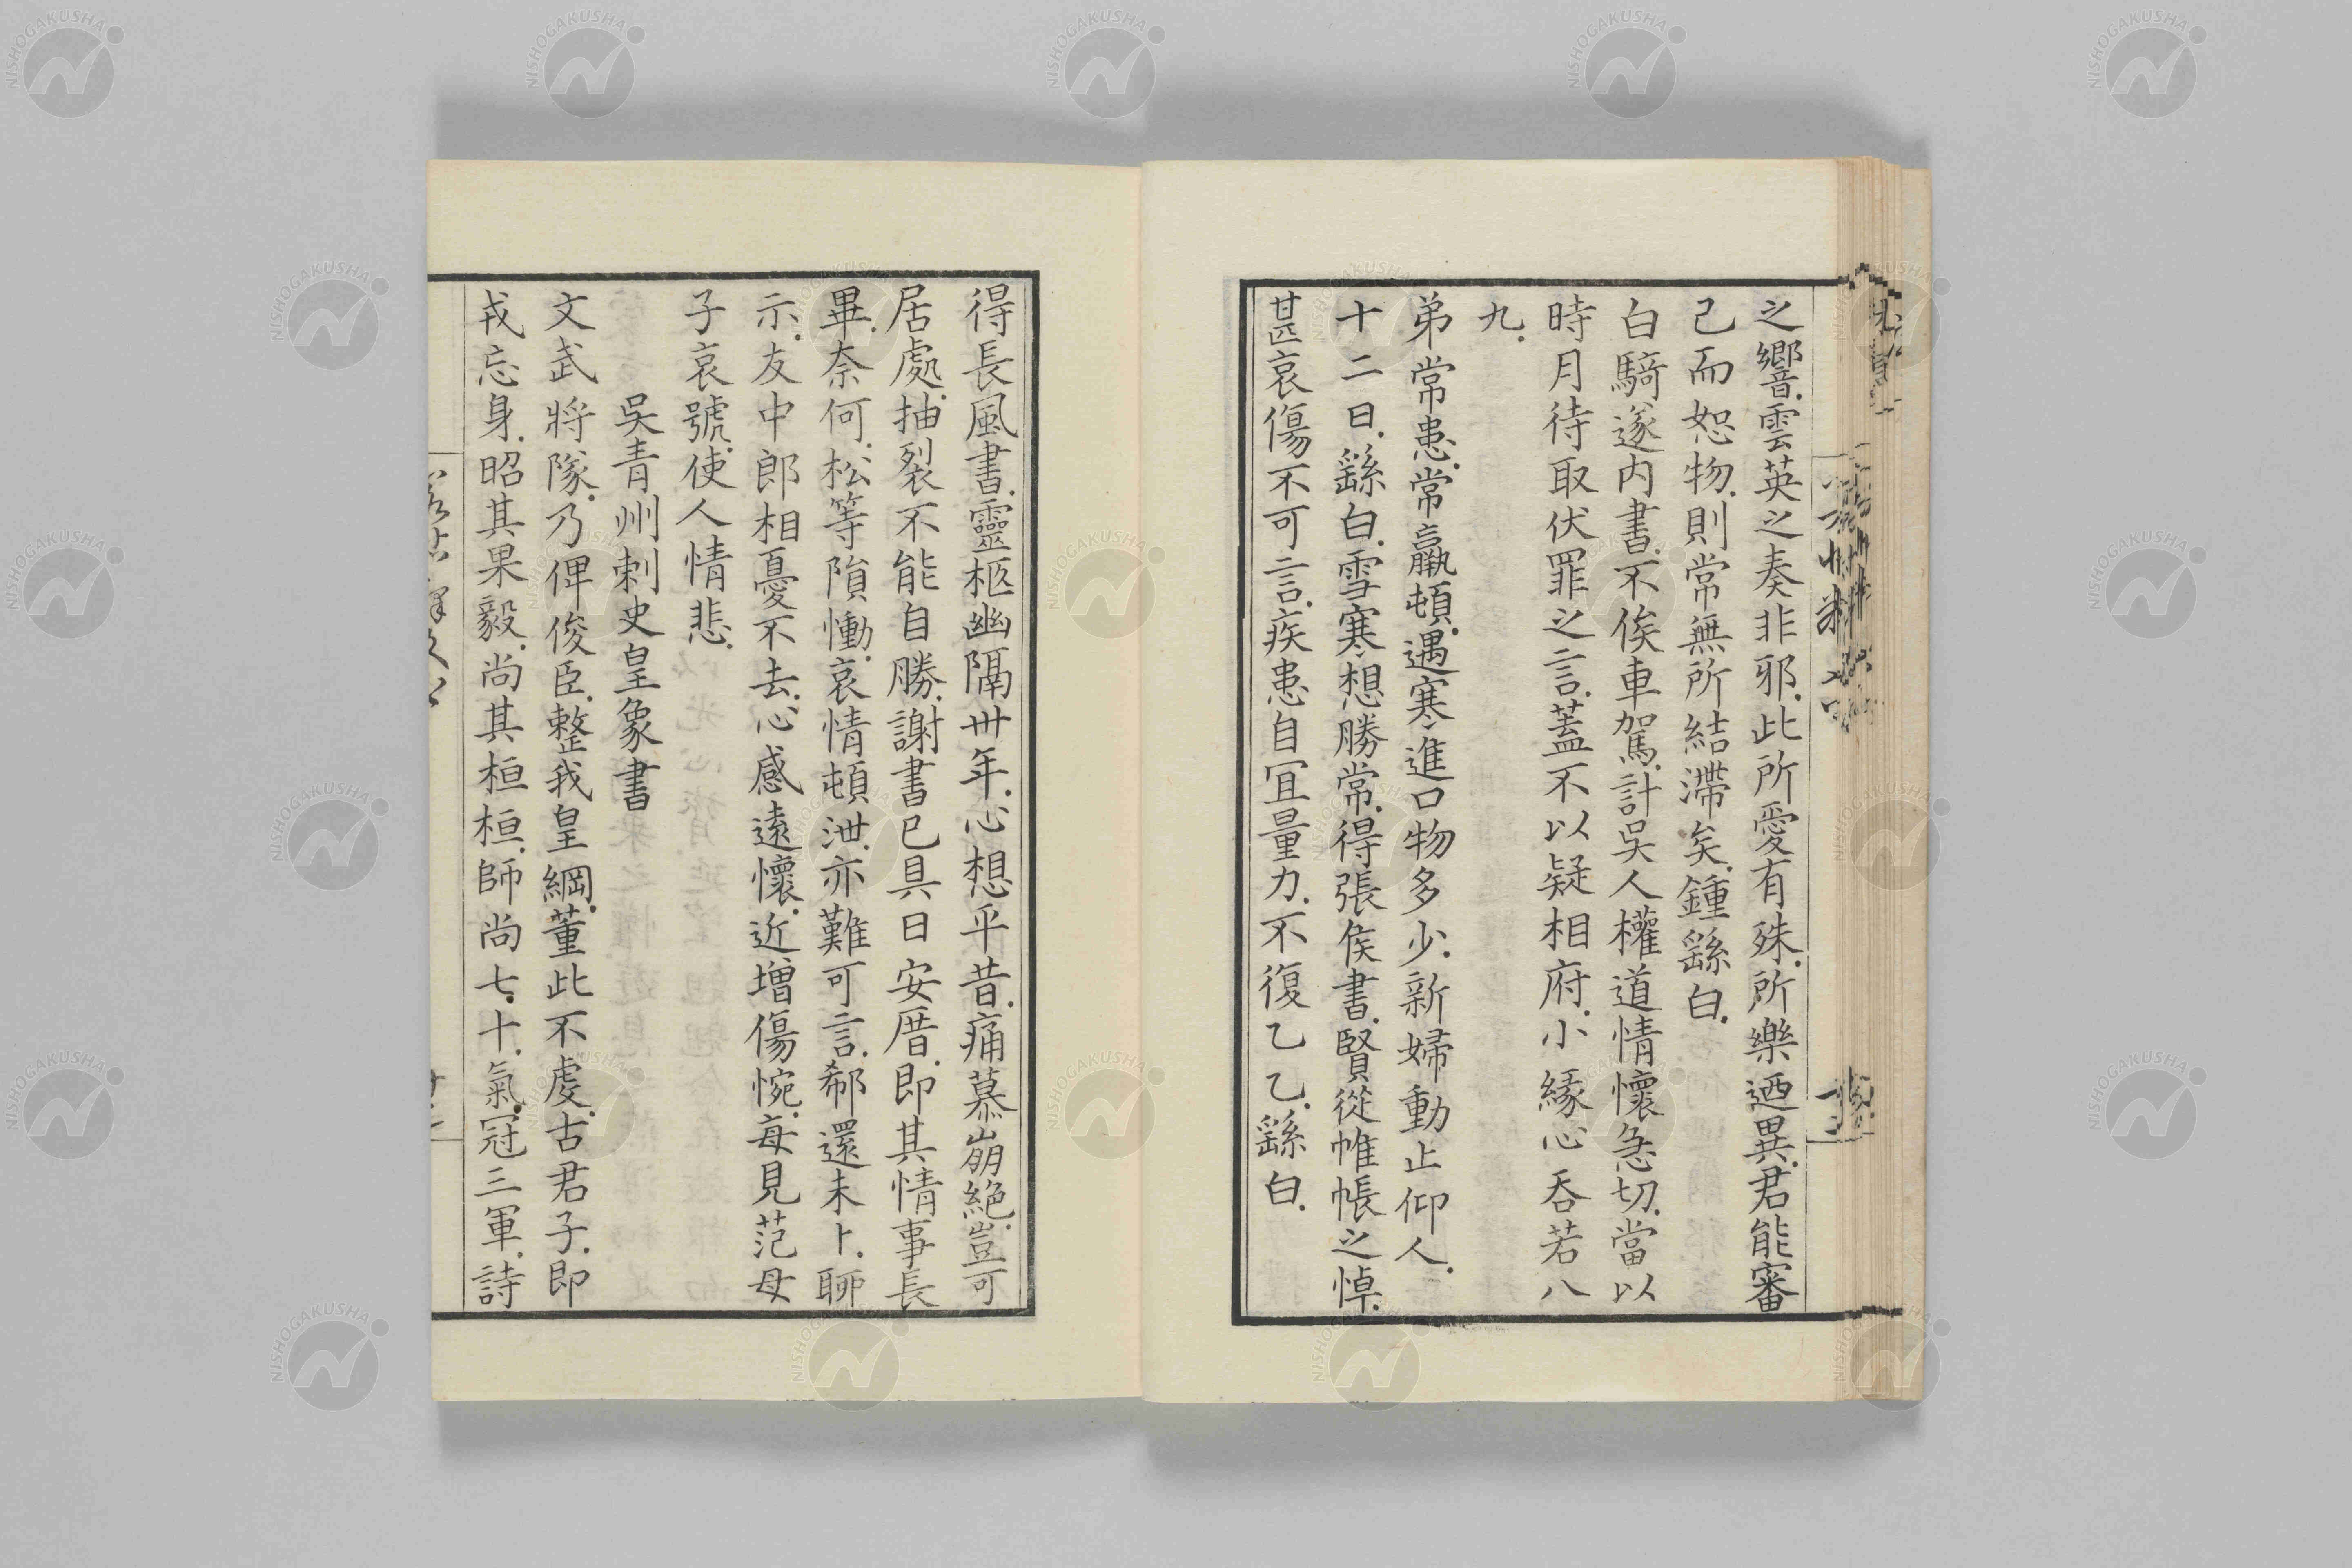 之響.雲英之奏非邪.此所愛有殊.所樂迺異.君能審
己而恕物.則常無所結滯矣.鍾繇白.
白騎遂内書.不俟車駕.計吳人權道情懷急切.當以
時月待取伏罪之言.蓋不以疑相府.小緣心吞若八
九.
弟常患.常羸頓.遇寒進口物多少.新婦動止仰人.
十二日.繇白.雪寒想勝常.得張侯書.賢從帷帳之悼.
甚哀傷不可言.疾患自宜量力.不復乙乙.繇白.
得長風書.靈柩幽隔卅年.心想平昔.痛慕崩絕.豈可
居處.抽裂不能自勝.謝書已具日安厝.即其情事長
畢.奈何.松等隕慟.哀情頓泄.亦難可言.郗還未卜.聊
示.友中郎相憂不去.心感遠懷.近增傷惋.每見范母
子哀號.使人情悲.
吳青州刺史皇象書
文武將隊.乃俾俊臣.整我皇綱.董此不虔.古君子.即
戎忘身.昭其果毅.尚其桓桓.師尚七.十.氣冠三軍.詩
NISHOGAKUSHA